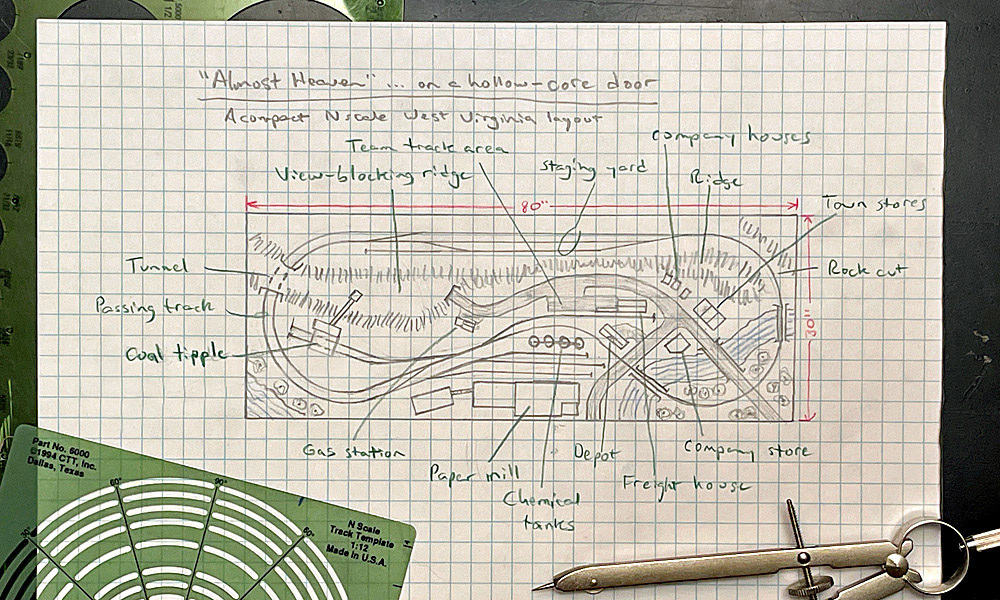 "Almost Heaven" ... on a hollow-core door
A compact N scale West Virginia layout
Team track area
company houses
View-blocking ridge
staging yard
Ridge
Town stores
80"
Tunnel
Rock cut
Passing track
30"
Coal tipple
Gas station
Paper mill
Depot
Company store
Chemical
tanks
Freight house
Part No. 6000
©1994 CTT, Inc.
Dallas, Texas
60°
90°
N Scale
Track Template
1:12
Made in U.S.A.